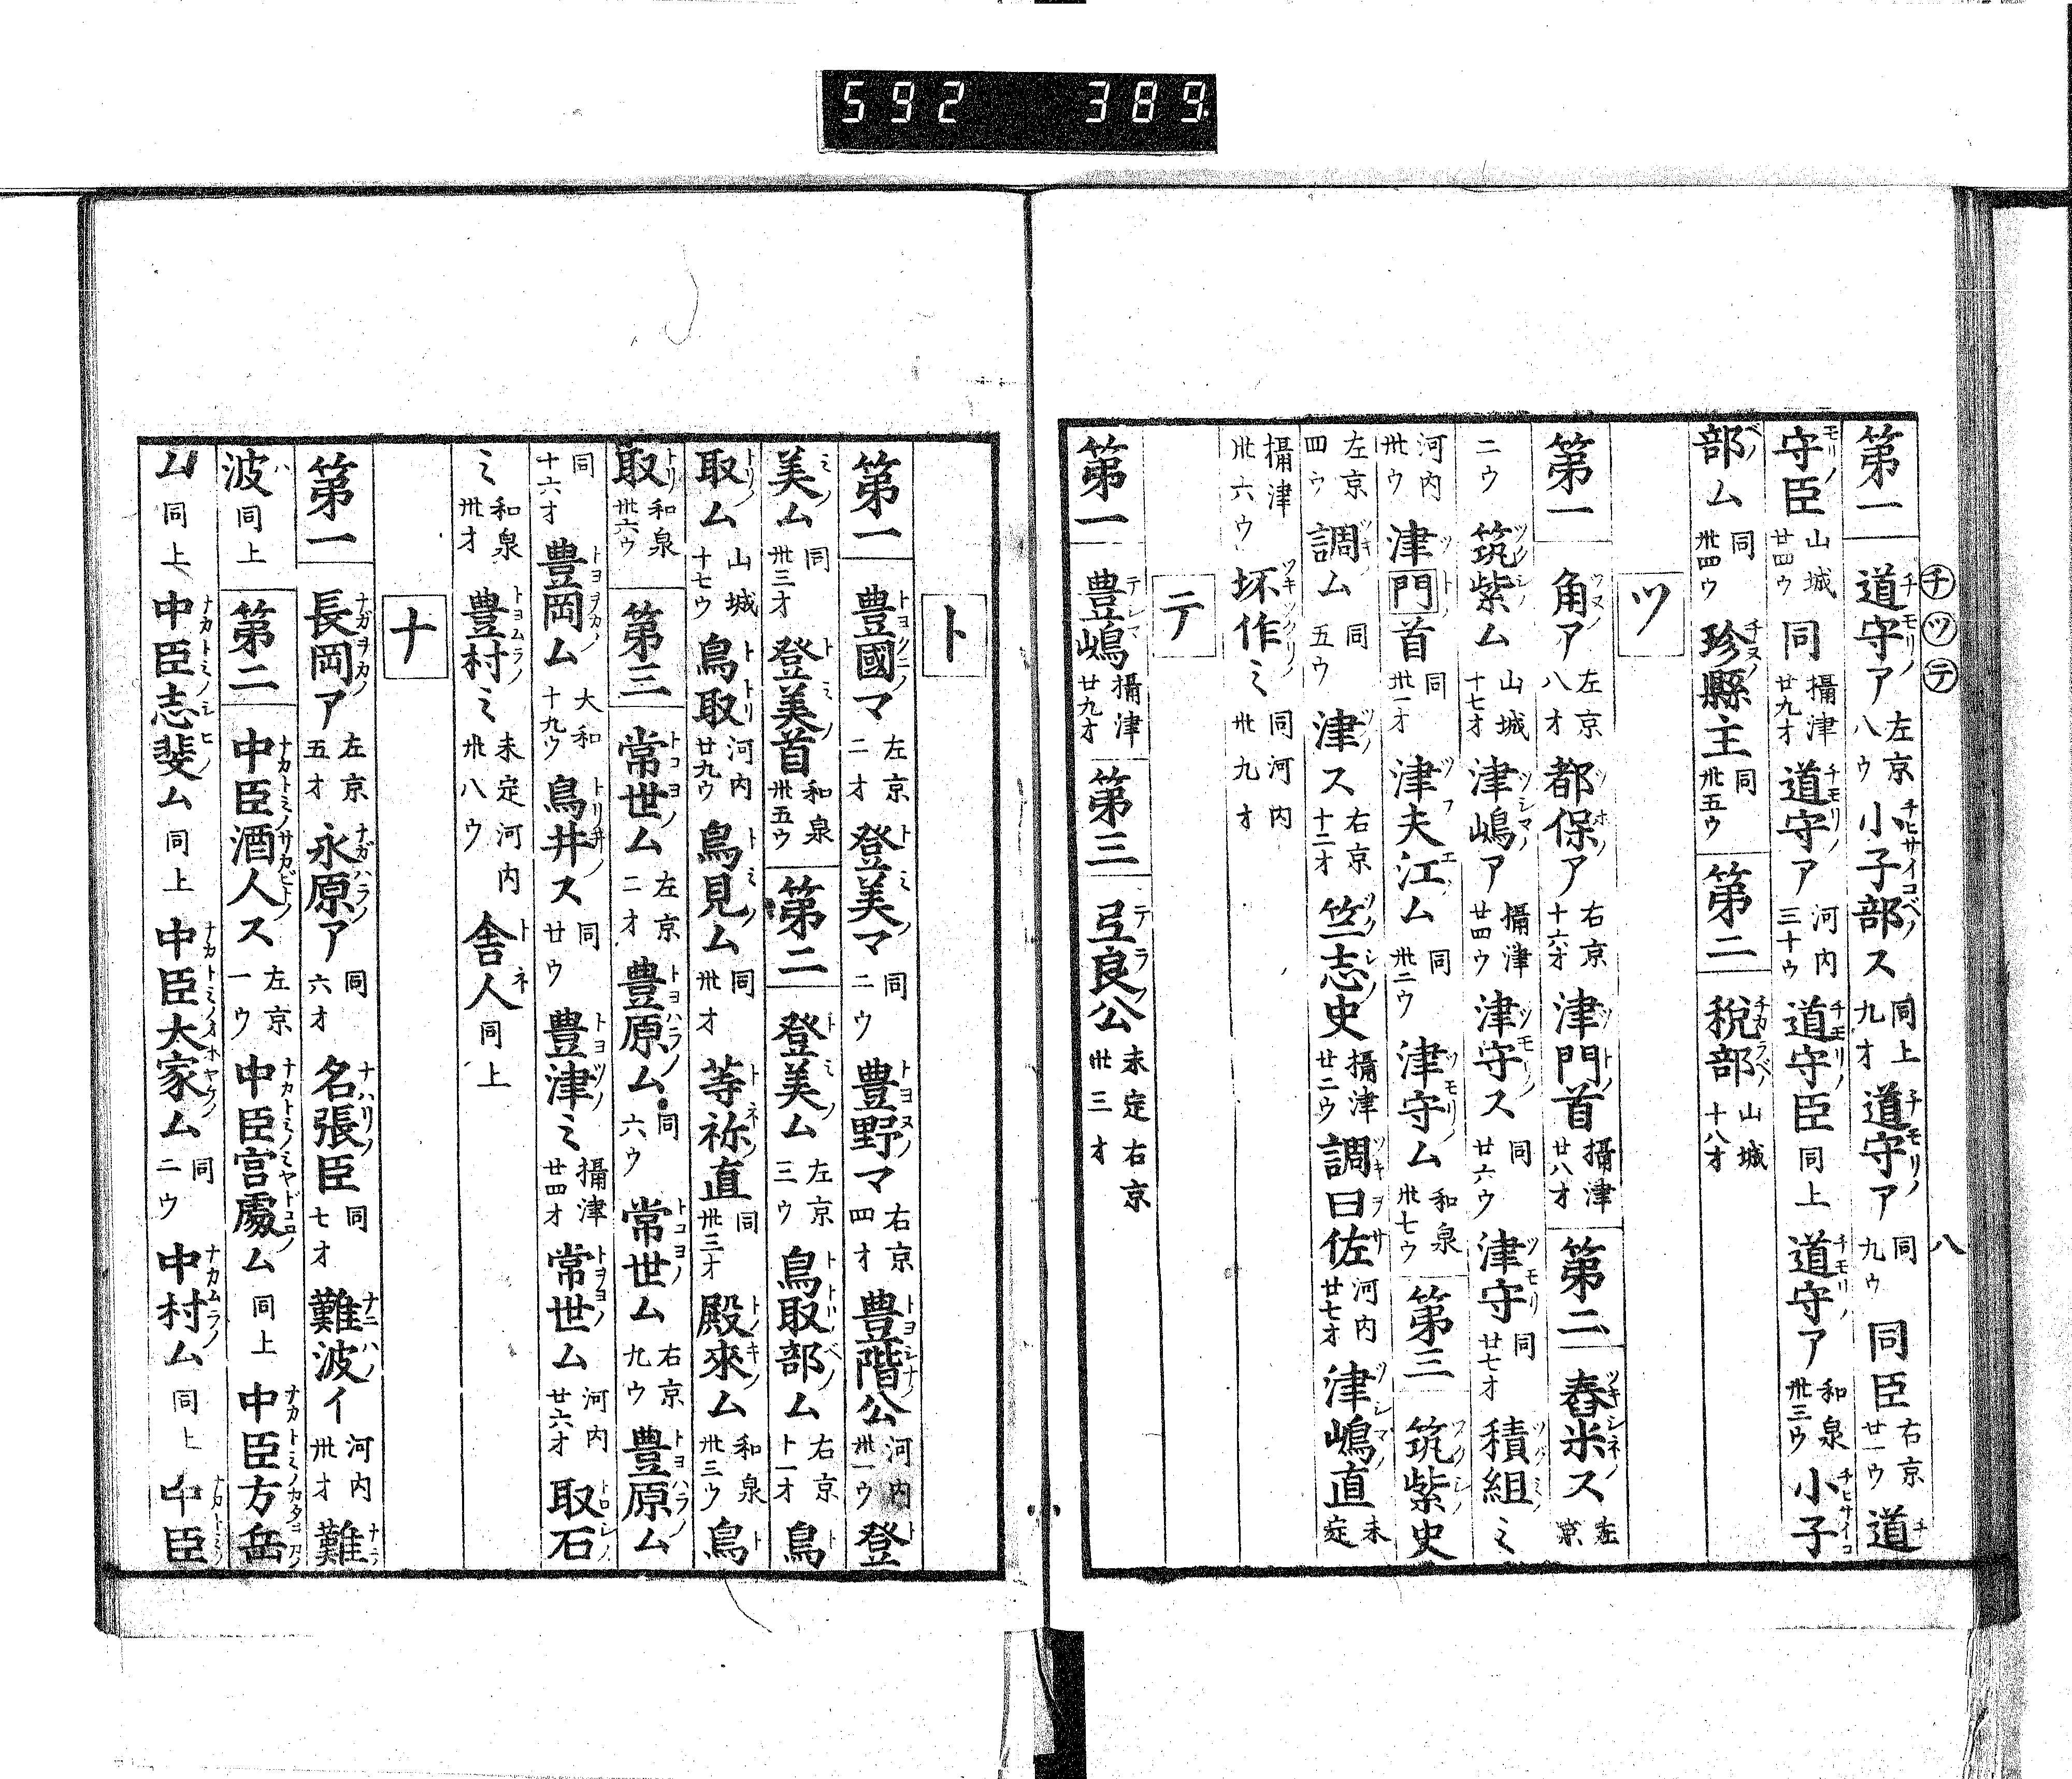 592 389.
チツテ 八
第一 道守ア 左京八ウ 小子部ス 同上九オ 道守ア 同九ウ 同臣 右京廿一ウ 道
守臣 山城廿四ウ 同 攝津廿九オ 道守ア 河内三十ウ 道守臣 同上 道守ア 和泉卅三ウ 小子
部ム 同卅四ウ 珍縣主 同卅五ウ 第二 税部 山城十八オ
ツ
第一 角ア 左京八オ 都保ア 右京十六オ 津門首 攝津廿八オ 第二 舂米ス 左京
二ウ 筑紫ム 山城十七オ 津嶋ア 攝津廿四ウ 津守ス 同廿六ウ 津守 同廿七オ 積組ミ
河内卅ウ 津門首 同卅一オ 津夫江ム 同卅二ウ 津守ム 和泉卅七ウ 第三 筑紫史
左京四ウ 調ム 同五ウ 津ス 右京十二オ 竺志史 攝津廿二ウ 調曰佐 河内廿七オ 津嶋直 未定
攝津卅六ウ 坏作ミ 同河内卅九オ
テ
第一 豊嶋 攝津廿九オ 第三 弖良公 未定右京卅三オ
ト
第一 豊國マ 左京二オ 登美マ 同二ウ 豊野マ 右京四オ 豊階公 河内卅一ウ 登
美ム 同卅三オ 登美首 和泉卅五ウ 第二 登美ム 左京三ウ 鳥取部ム 右京十一オ 鳥
取ム 山城十七ウ 鳥取 河内廿九ウ 鳥見ム 同卅オ 等祢直 同卅三オ 殿來ム 和泉卅三ウ 鳥
取 和泉卅六ウ 第三 常世ム 左京二オ 豊原ム 同六ウ 常世ム 右京九ウ 豊原ム
同十六オ 豊岡ム 大和十九ウ 鳥井ス 同廿ウ 豊津ミ 攝津廿四オ 常世ム 河内廿六オ 取石
ミ 和泉卅オ 豊村ミ 未定河内卅八ウ 舎人 同上
ナ
第一 長岡ア 左京五オ 永原ア 同六オ 名張臣 同七オ 難波イ 河内卅オ 難
波 同上 第二 中臣酒人ス 左京一ウ 中臣宮處ム 同上 中臣方岳
ム 同上 中臣志斐ム 同上 中臣大家ム 同二ウ 中村ム 同上 中臣